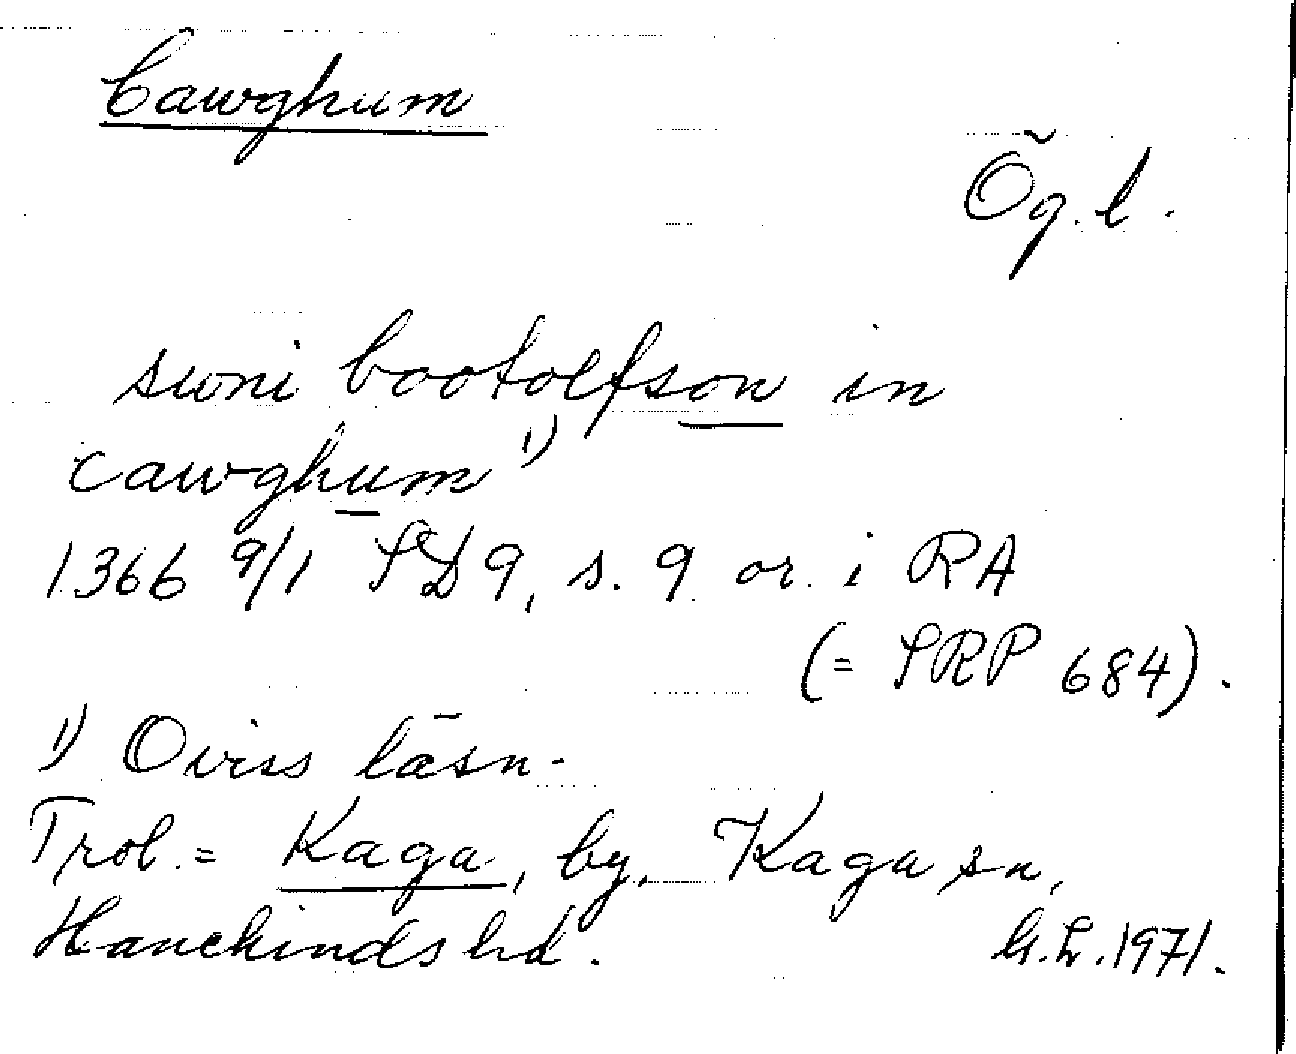 Cawghum
Ög. l.
swni bootolfson in
cawghum 1)
1366 9/1 SD 9, s. 9 or. i RA
(= SRP 684).
1) Oviss läsn.
Trol. = Kaga, by, Kaga sn,
Hanekinds hd. G.L. 1971.